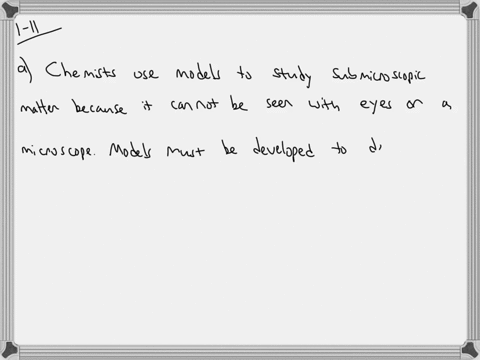 1-11
a) Chemists use models to study submicroscopic
matter because it cannot be seen with eyes or a
microscope. Models must be developed to